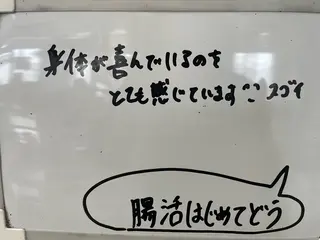 身体が喜んでいるのを
とても感じています^^ スゴイ
腸活はじめてどう